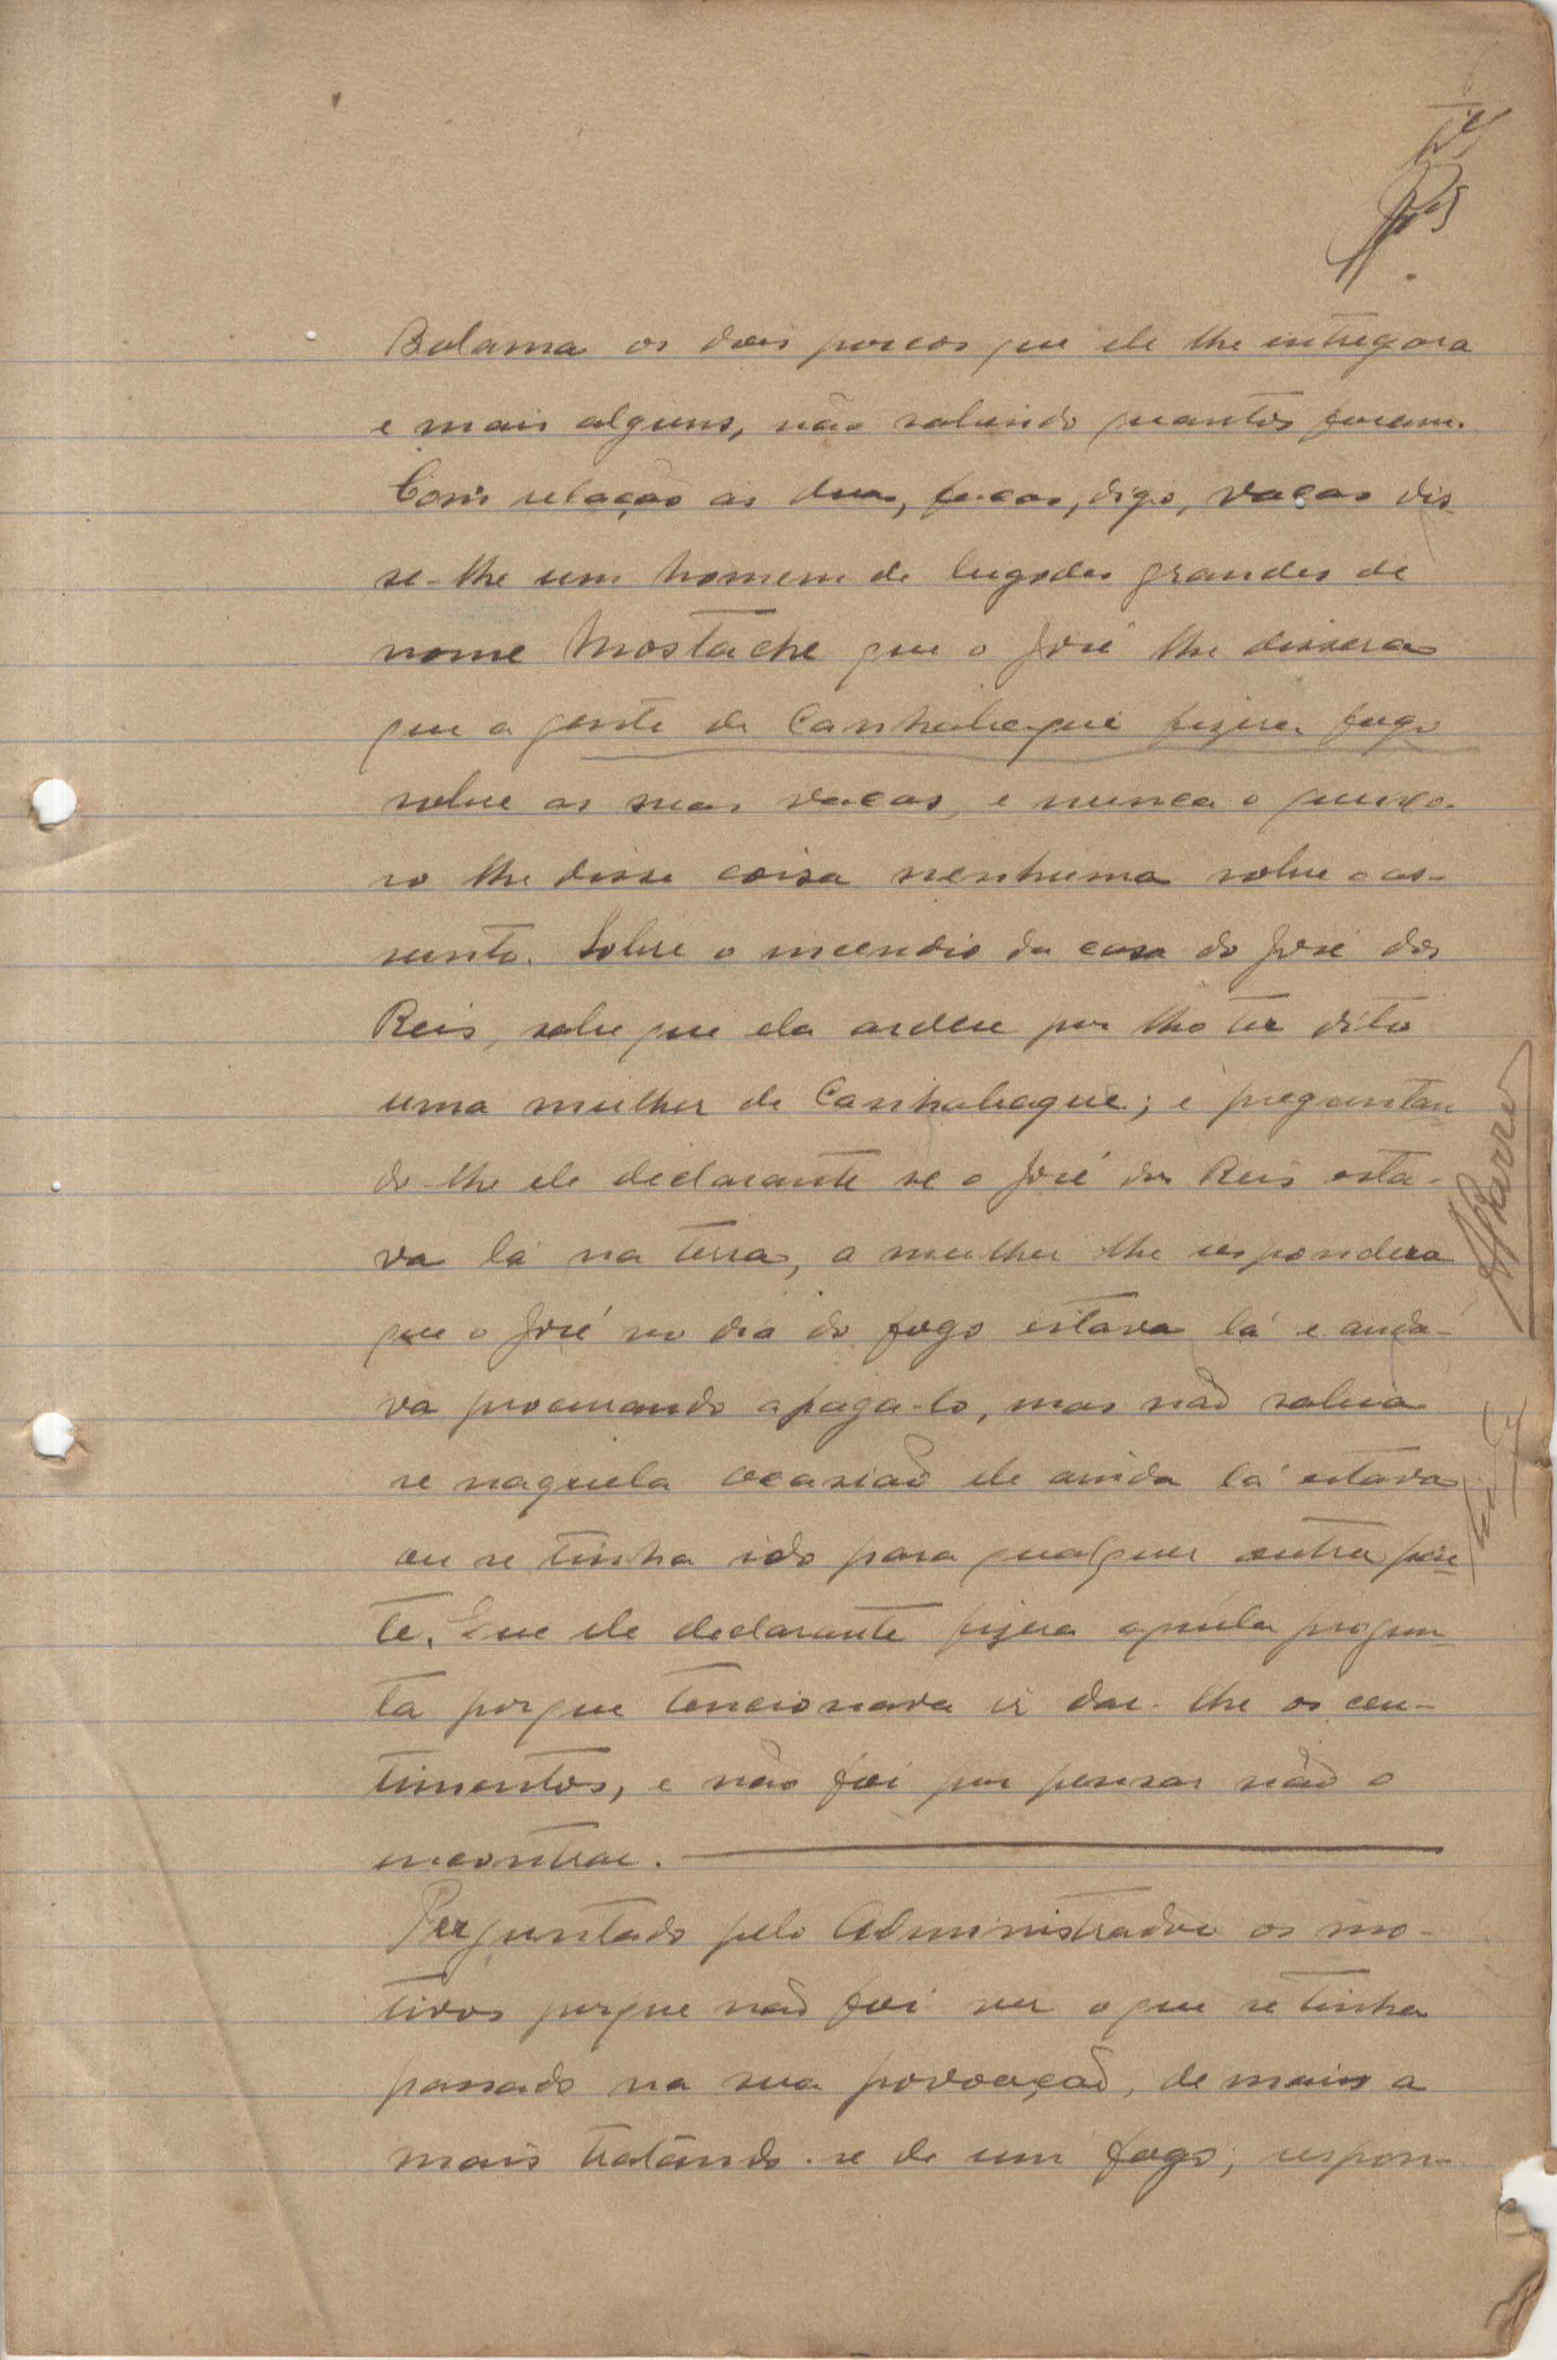 Bolama os dois porcos que ele lhe entregara
e mais alguns, não sabendo quantos foram.
Com relação ás duas, porcas, digo, vacas dis
se-lhe um homem de bigodes grandes de
nome Mostache que o José lhe dissera
que a gente de Canhabaque fizera fogo
sobre as suas vacas, e nunca o
ro lhe disse coisa nenhuma sobre o as-
sunto. Sobre o incendio da casa do José dos
Reis, sabe que ela ardeu por lho ter dito
uma mulher de Canhabaque; e preguntan
do-lhe ele declarante se o José dos Reis esta-
va lá na terra, a mulher lhe respondera
que o José no dia do fogo estava lá e anda-
va procurando apaga-lo, mas não sabia
se naquela ocasião ele ainda lá estava
ou se tinha ido para qualquer outra par
te. Que ele declarante fizera aquela pregun
ta porque tencionava ir dar-lhe os cen-
timentos, e não foi por pensar não o
encontrar.
Perguntado pelo Administrador os mo-
tivos porque não foi ver o que se tinha
passado na sua povoação, de mais a
mais tratando-se de um fogo, respon-